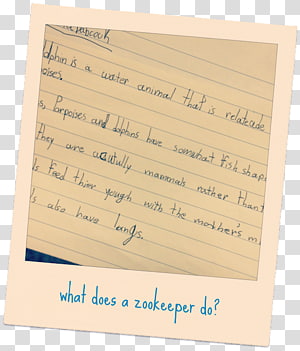 olphin is a water animal that is relateade
oises.
s, Porpoises and dolphins have somewhat fish shap
they are acutully mammals rather than
ls feed thier yough with the mother's m
ls also have lungs.
what does a zookeeper do?